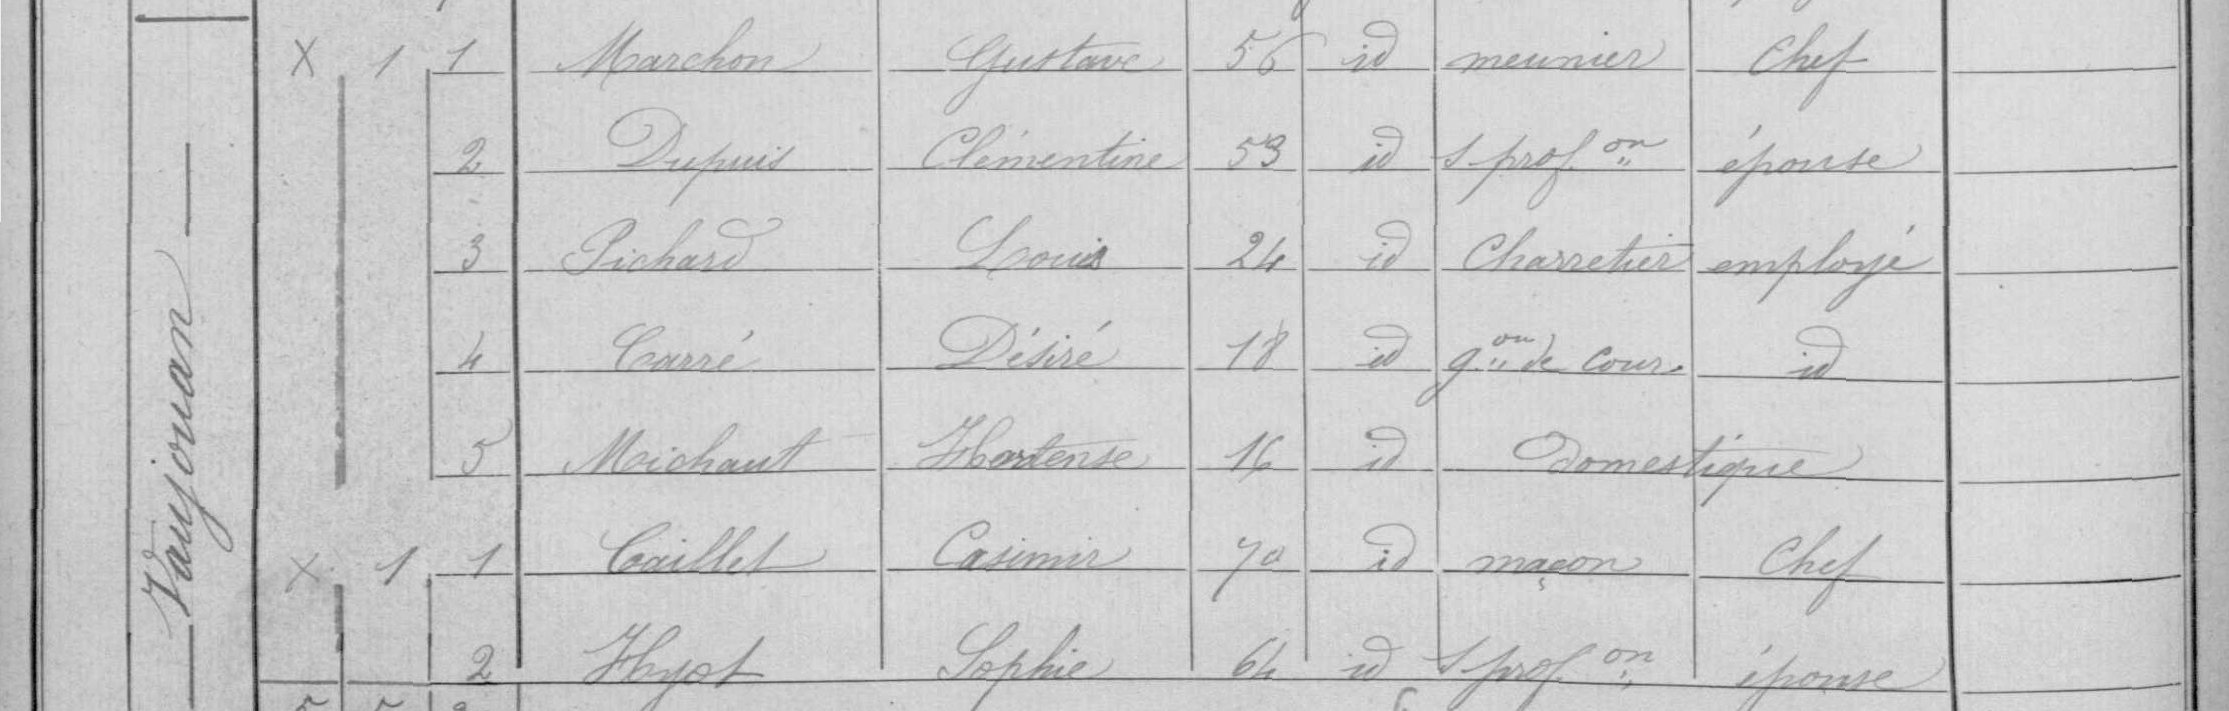 Vaujouan
X 1 1 Marchon Gustave 56 id meunier Chef
2 Dupuis Clémentine 53 id s prof.on épouse
3 Pichard Louis 24 id Charretier employé
4 Carré Désiré 18 id g.on de Cour. id
5 Michaut Hortense 16 id Domestique
X 1 1 Caillet Casimir 70 id maçon Chef
2 Hyot Sophie 64 id s prof.on épouse